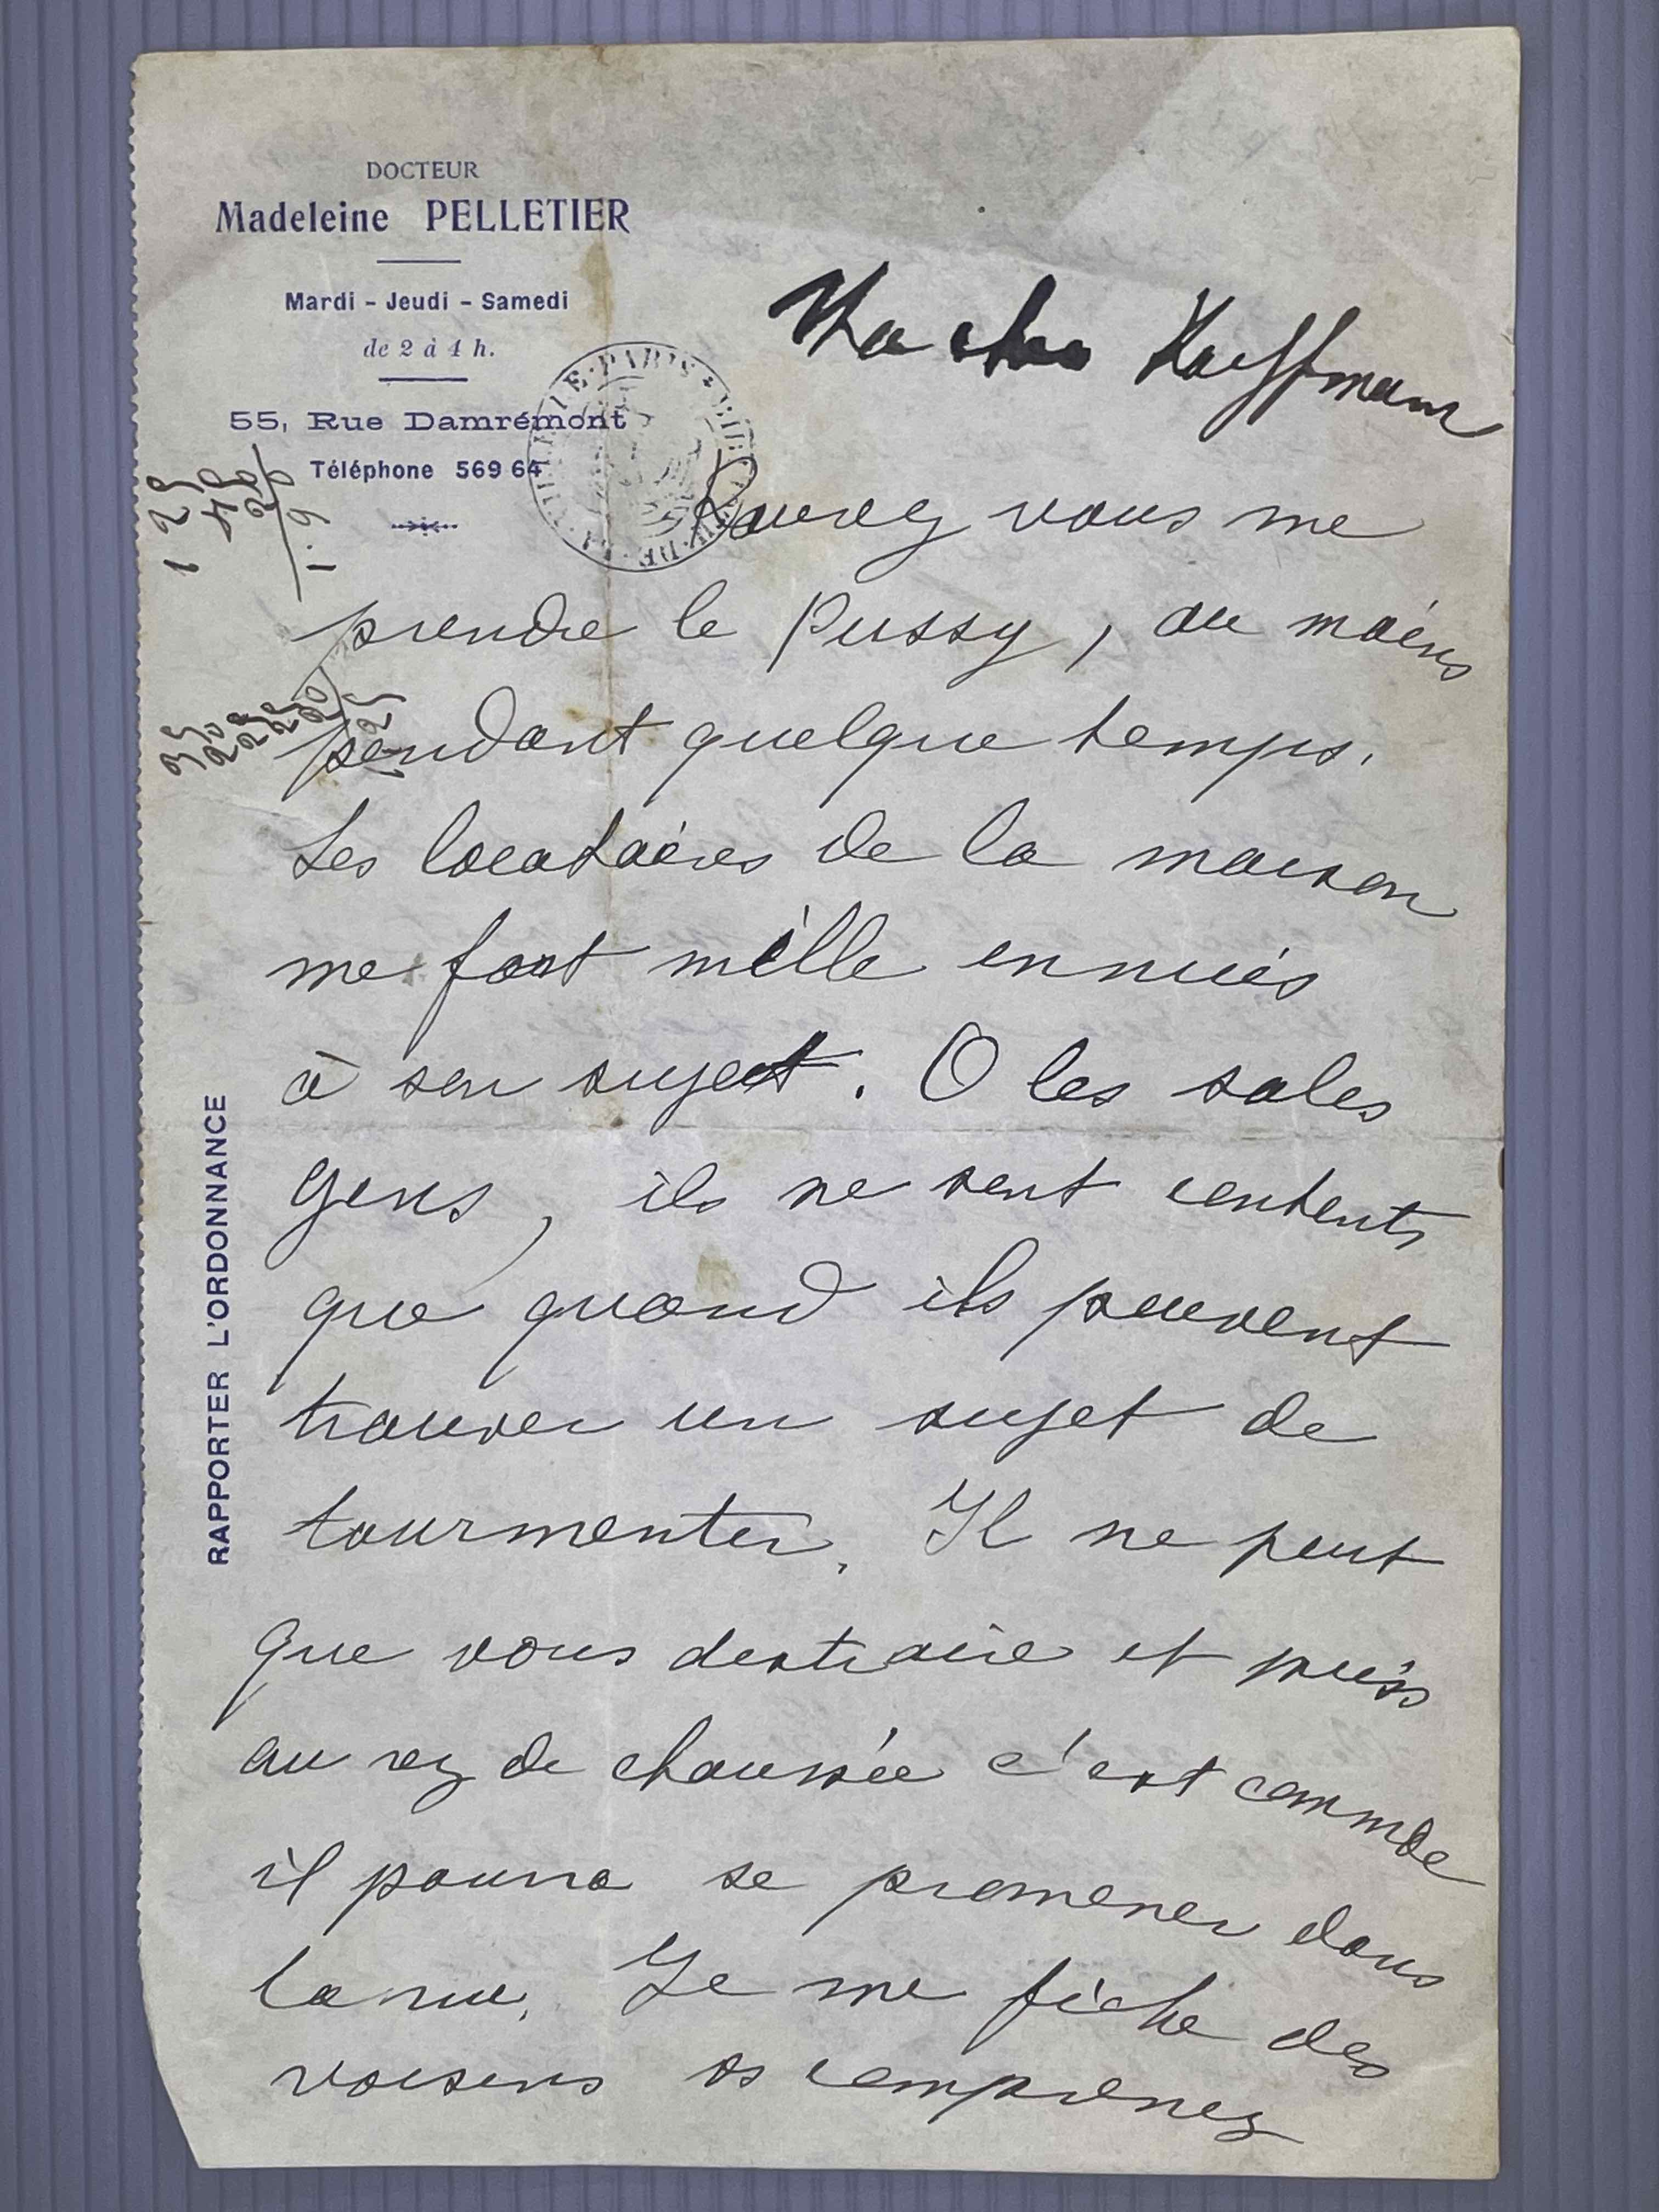 DOCTEUR
Madeleine PELLETIER
Mardi - Jeudi - Samedi
de 2 à 4 h.
55, Rue Damrémont
Téléphone 569 64
Ma chère Kauffmann
Pouvez vous me
prendre le Pussy, au moins
pendant quelque temps.
Les locataires de la maison
me font mille ennuis
à son sujet. O les sales
gens, ils ne sont contents
que quand ils peuvent
trouver un sujet de
tourmenter. Il ne peut
que vous distraire et puis
au rez de chaussée c'est commode
il pourra se promener dans
la rue. Je me fiche des
voisins vs comprenez
RAPPORTER L'ORDONNANCE